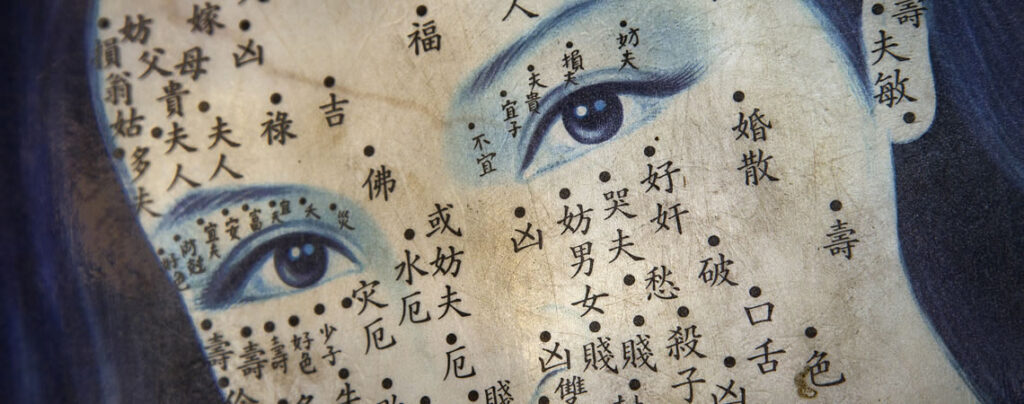 福
人
嫁母
凶
妨父貴夫人
損翁姑
多夫
夫人
祿
吉
佛
妨夫
損夫
夫貴
宜子
不宜
壽
夫敏
婚散
壽
好奸
哭夫
妨男女
凶
愁
破
口舌
色
殺子
賤
賤
凶
雙
凶
或妨夫
水厄
灾厄
厄
災
夭
富
安
宜夫
少子
好色
壽
壽
壽
賤